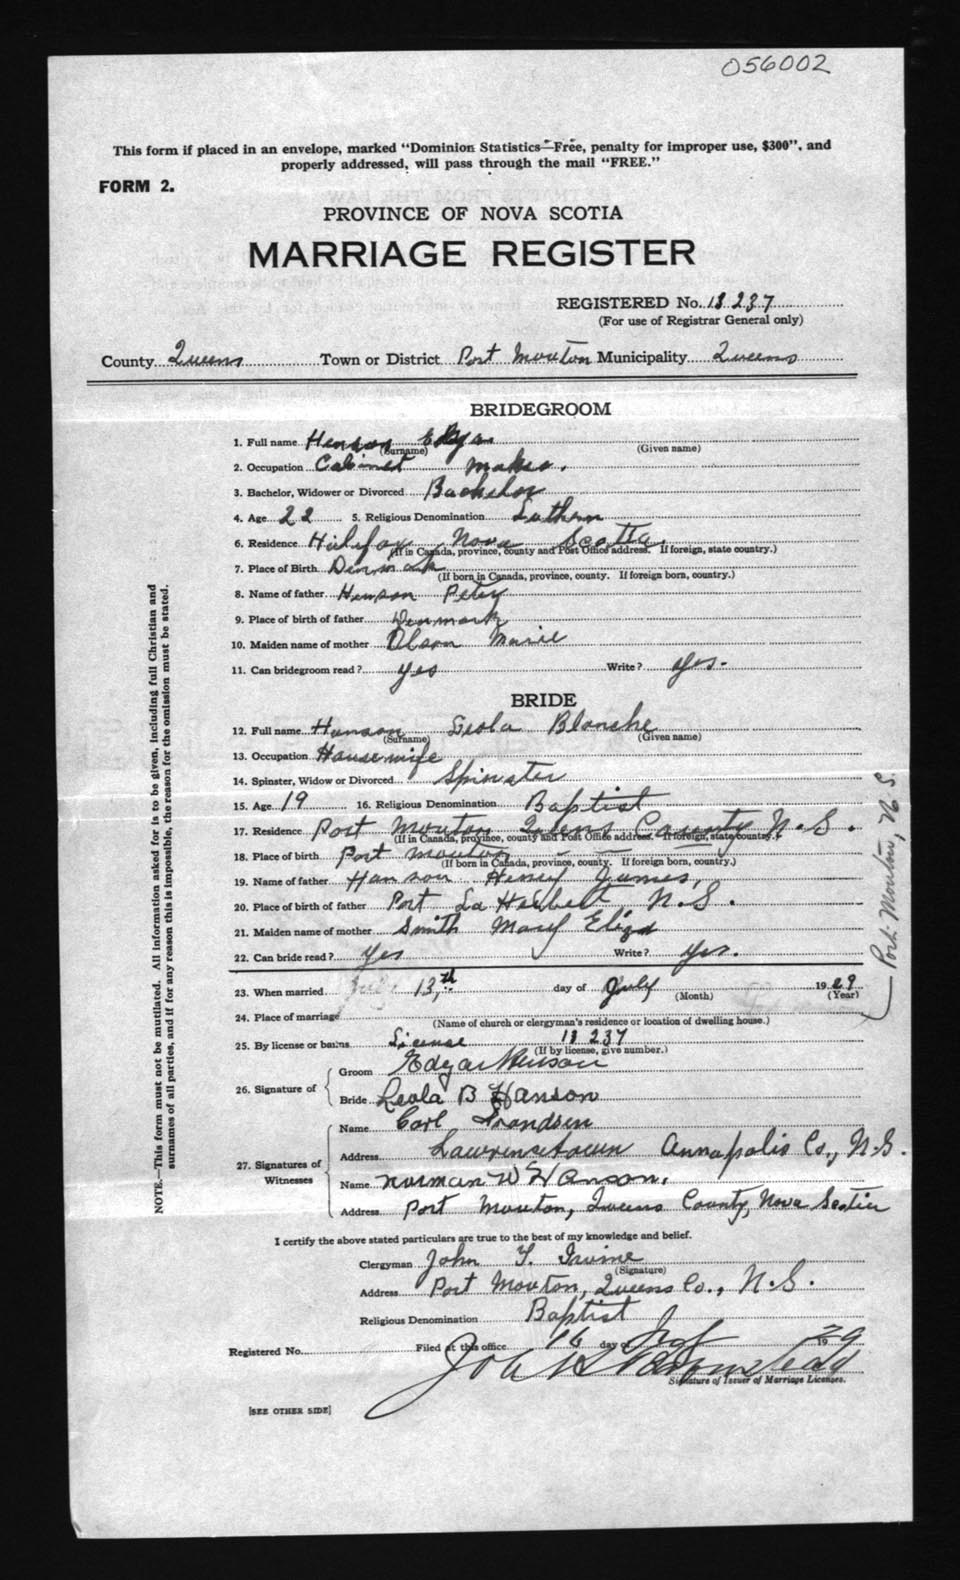 056002
This form if placed in an envelope, marked "Dominion Statistics—Free, penalty for improper use, $300", and
properly addressed, will pass through the mail "FREE."
FORM 2.
PROVINCE OF NOVA SCOTIA
MARRIAGE REGISTER
REGISTERED No. 13237
(For use of Registrar General only)
County Queens Town or District Port Mouton Municipality Queens
BRIDEGROOM
1. Full name Henson Edgar
(Surname) (Given name)
2. Occupation Cabinet maker.
3. Bachelor, Widower or Divorced Bachelor
4. Age 22 5. Religious Denomination Luthern
6. Residence Halifax Nova Scotia
(If in Canada, province, county and Post Office address. If foreign, state country.)
7. Place of Birth Denmark
(If born in Canada, province, county. If foreign born, country.)
8. Name of father Henson Peter
9. Place of birth of father Denmark
10. Maiden name of mother Olson Marie
11. Can bridegroom read? yes Write? yes.
BRIDE
12. Full name Hanson Leola Blanche
(Surname) (Given name)
13. Occupation Housewife
14. Spinster, Widow or Divorced Spinster
15. Age 19 16. Religious Denomination Baptist
17. Residence Port Mouton Queens County N.S.
(If in Canada, province, county and Post Office address. If foreign, state country.)
18. Place of birth Port Mouton
(If born in Canada, province, county. If foreign born, country.)
19. Name of father Hanson Henry James,
20. Place of birth of father Port La Herbert, N.S.
21. Maiden name of mother Smith Mary Eliza
22. Can bride read? Yes Write? Yes.
23. When married July 13,th day of July 1929
(Month) (Year)
24. Place of marriage Port Mouton, N.S.
(Name of church or clergyman's residence or location of dwelling house.)
25. By license or banns License 13237
(If by license, give number.)
26. Signature of
Groom Edgar Henson
Bride Leola B Hanson
27. Signatures of Witnesses
Name Carl Frandsen
Address Lawrencetown Annapolis Co., N.S.
Name Norman W Hanson.
Address Port Mouton, Queens County, Nova Scotia
I certify the above stated particulars are true to the best of my knowledge and belief.
Clergyman John Irvine
(Signature)
Address Port Mouton, Queens Co., N.S.
Religious Denomination Baptist
Registered No. Filed at this office 16 day of 1929
Signature of Issuer of Marriage Licenses.
[SEE OTHER SIDE]
NOTE.—This form must not be mutilated. All information asked for is to be given, including full Christian and
surnames of all parties, and if for any reason this is impossible, the reason for the omission must be stated.